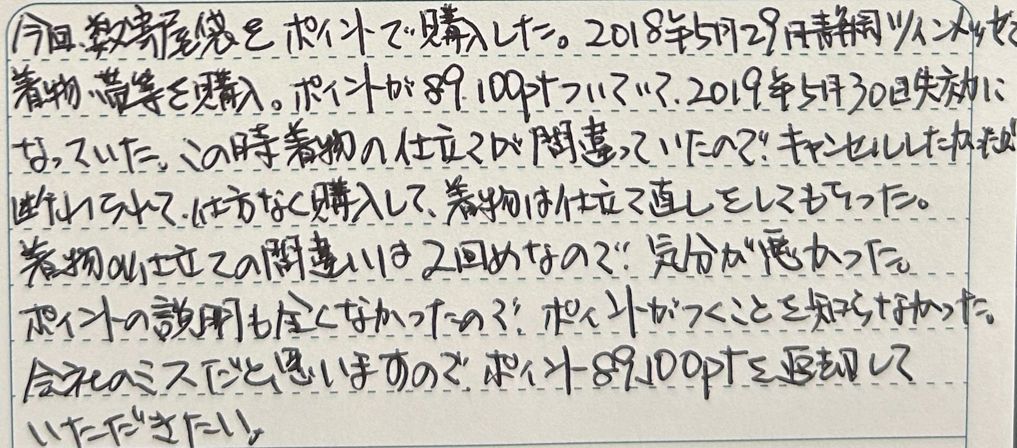 今回、数寄屋袋をポイントで購入した。2018年5月29日静岡ツインメッセで
着物、帯等を購入。ポイントが89,100ptついていて、2019年5月30日失効に
なっていた。この時着物の仕立てが間違っていたので、キャンセルしたかったが
断わられて、仕方なく購入して、着物は仕立て直しをしてもらった。
着物の仕立ての間違いは2回めなので、気分が悪かった。
ポイントの説明も全くなかったので、ポイントがつくことを知らなかった。
会社のミスだと思いますので、ポイント89,100ptを返却して
いただきたい。